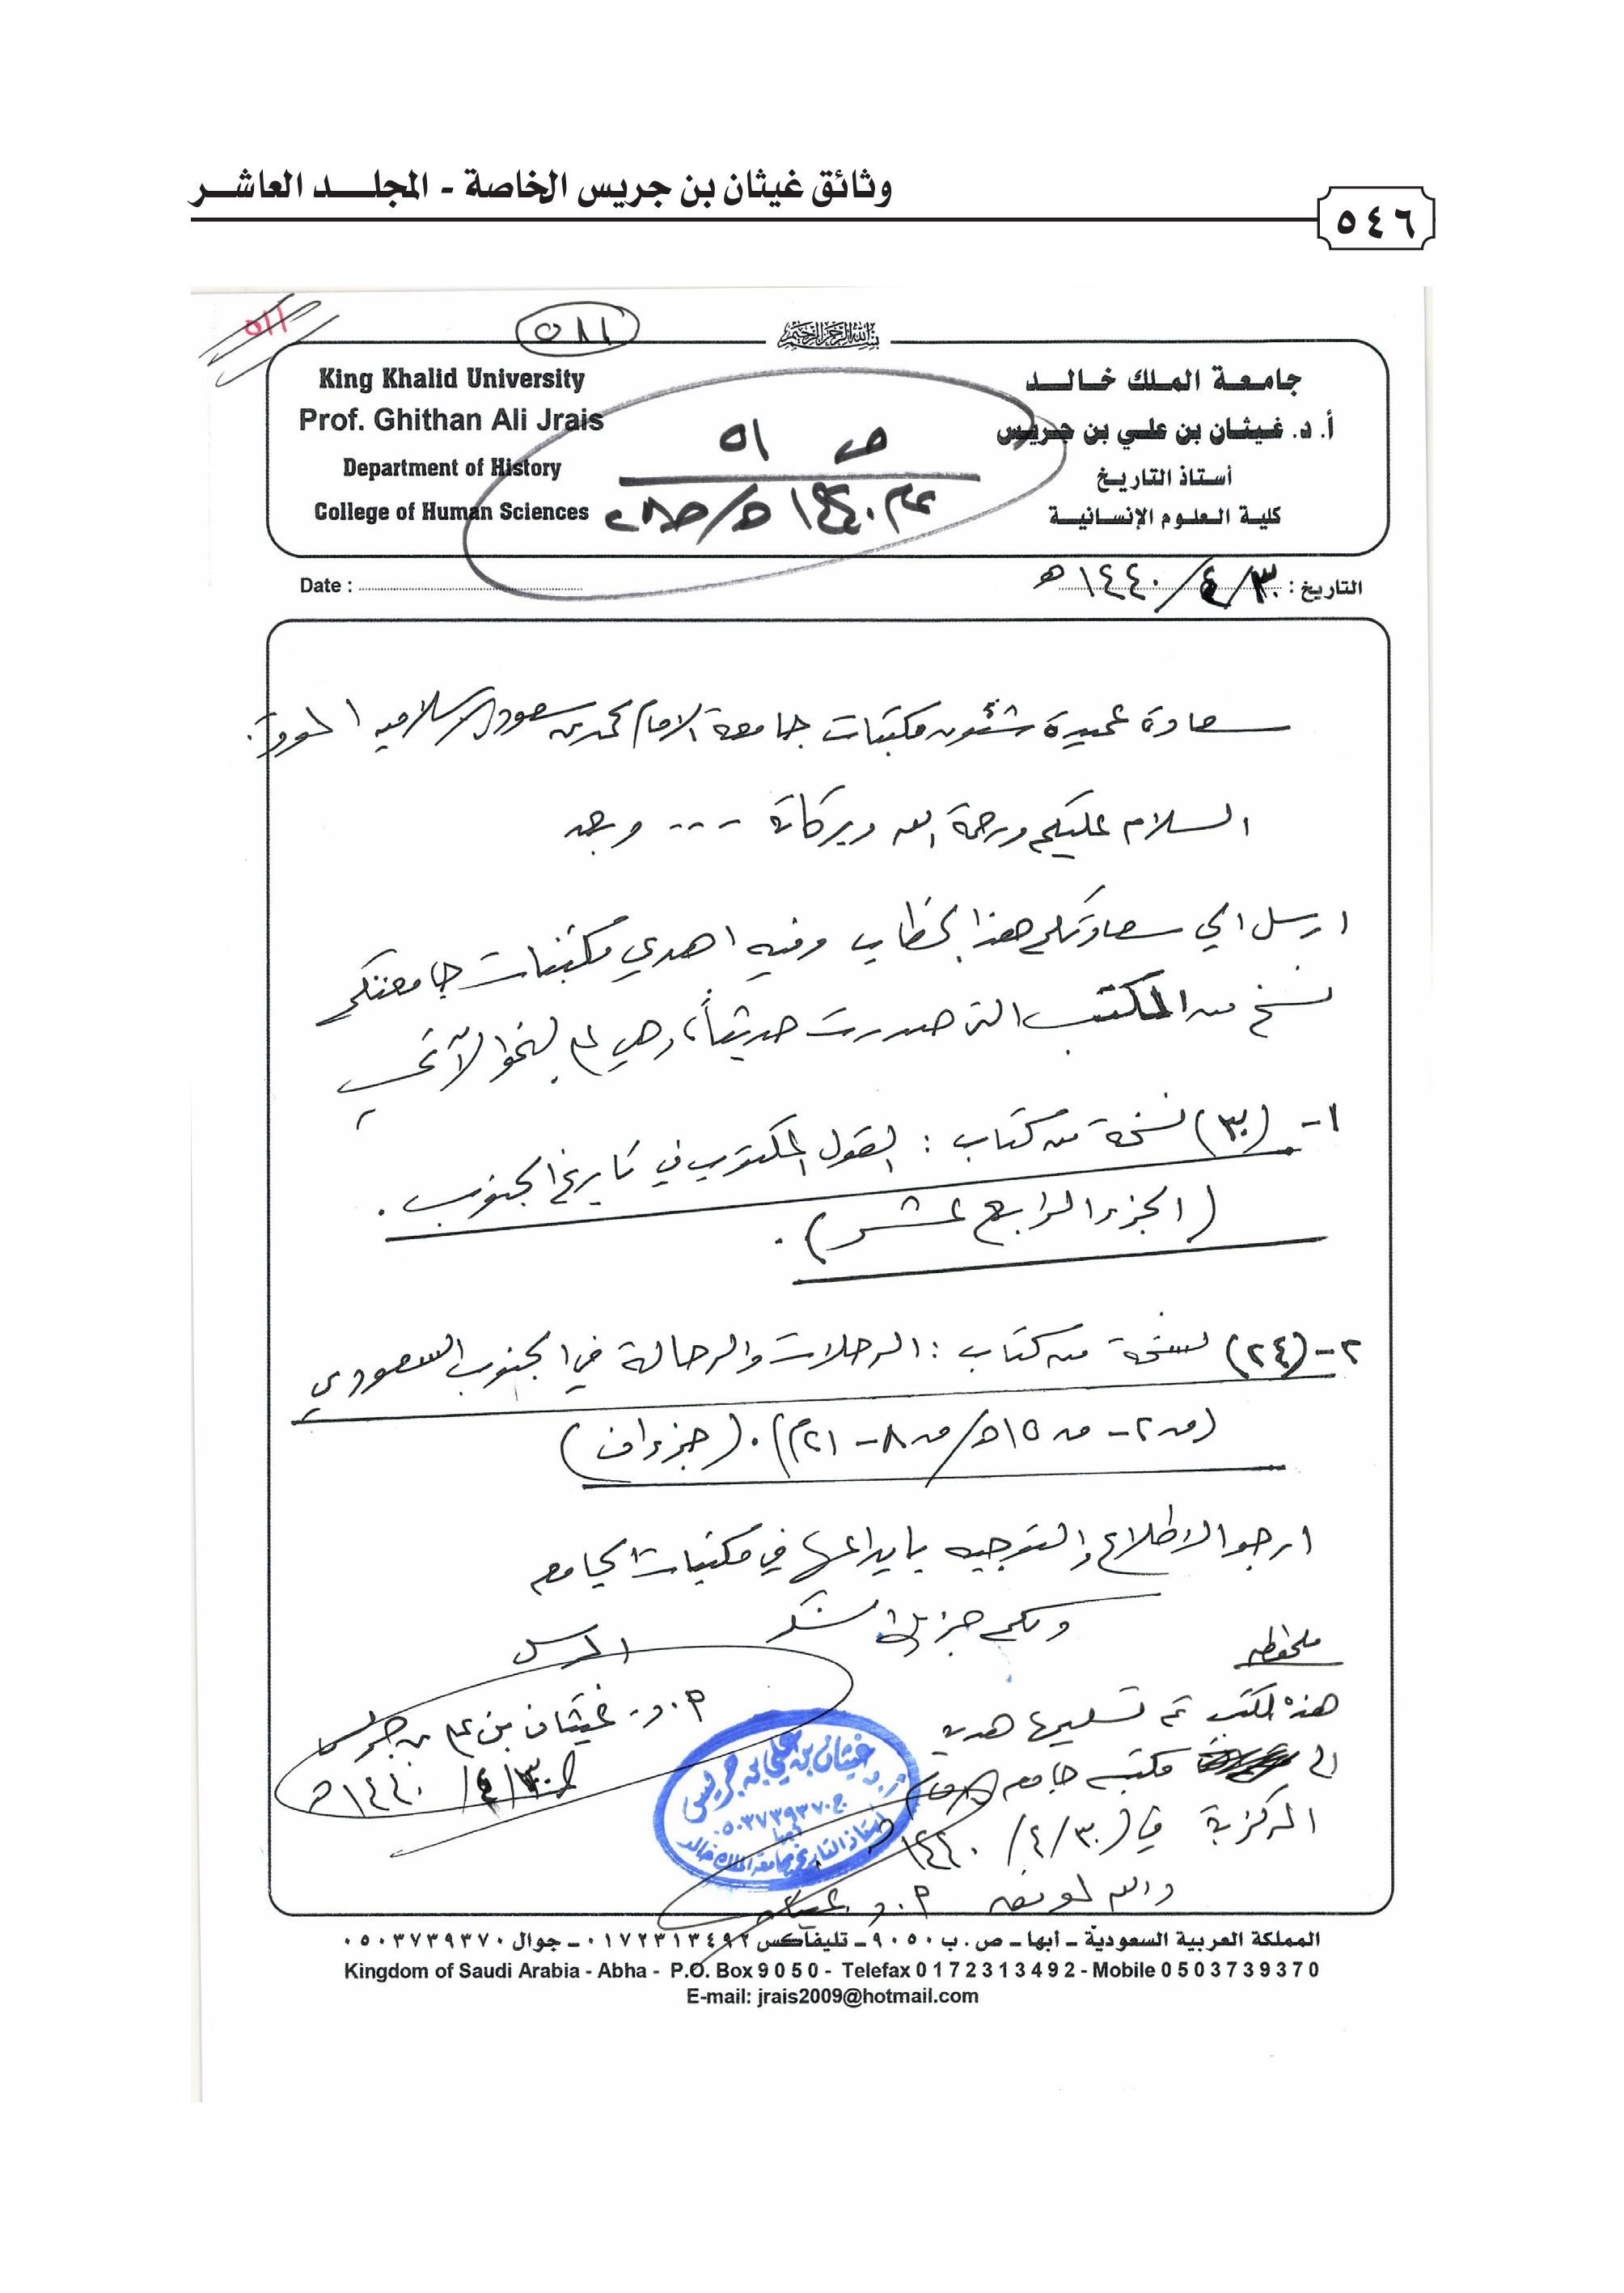 وثائق غيثان بن جريس الخاصة - المجلـــد العاشـــر
٥٤٦
٥١١
٥١١
بسم الله الرحمن الرحيم
King Khalid University
Prof. Ghithan Ali Jrais
Department of History
College of Human Sciences
جامعـة الملك خـالـد
أ. د. غيثـان بن علـي بن جريس
أستاذ التاريخ
كلية العلوم الإنسانية
ص ٥١
عام ١٤٤٠هـ/
Date :
التاريخ : ٣٠/٤/١٤٤٠هـ
سعادة عميدة شئون مكتبات جامعة الامام محمد بن سعود الاسلاميه الموقرة.
السلام عليكم ورحمة الله وبركاته ... وبعد
ارسل الي سعادتكم هذا الخطاب وفيه اهدي مكتبات جامعتكم
نسخ من الكتب التي صدرت حديثاً، وهي على النحو الآتي
١- (٣٠) نسخة من كتاب : القول المكتوب في تاريخ الجنوب .
(الجزء الرابع عشر) .
٢- (٢٤) نسخة من كتاب : الرحلات والرحالة في الجنوب السعودي
(من ق٢- ق١٥هـ/ ق٨-٢١م) . (جزءان)
ارجو الاطلاع والتوجيه بايداعها في مكتبات الجامعه
ولكم جزيل الشكر
المرسل
أ.د. غيثان بن علي بن جريس
٣٠/٤/١٤٤٠هـ
ملحوظه
هذه الكتب تم تسليمها هديه
الى مكتبه جامعه الامام
المركزية في (٣٠/٤/١٤٤٠هـ)
والله الموفق أ.د. غيثان
أ.د غيثان بن علي بن جريس
ج٠٥٠٣٧٣٩٣٧٠
أبها
استاذ التاريخ بجامعة الملك خالد
المملكة العربية السعودية - أبها - ص . ب ٩٠٥٠ - تليفاكس ٠١٧٢٣١٣٤٩٢ - جوال ٠٥٠٣٧٣٩٣٧٠
Kingdom of Saudi Arabia - Abha - P.O. Box 9 0 5 0 - Telefax 0 1 7 2 3 1 3 4 9 2 - Mobile 0 5 0 3 7 3 9 3 7 0
E-mail: jrais2009@hotmail.com